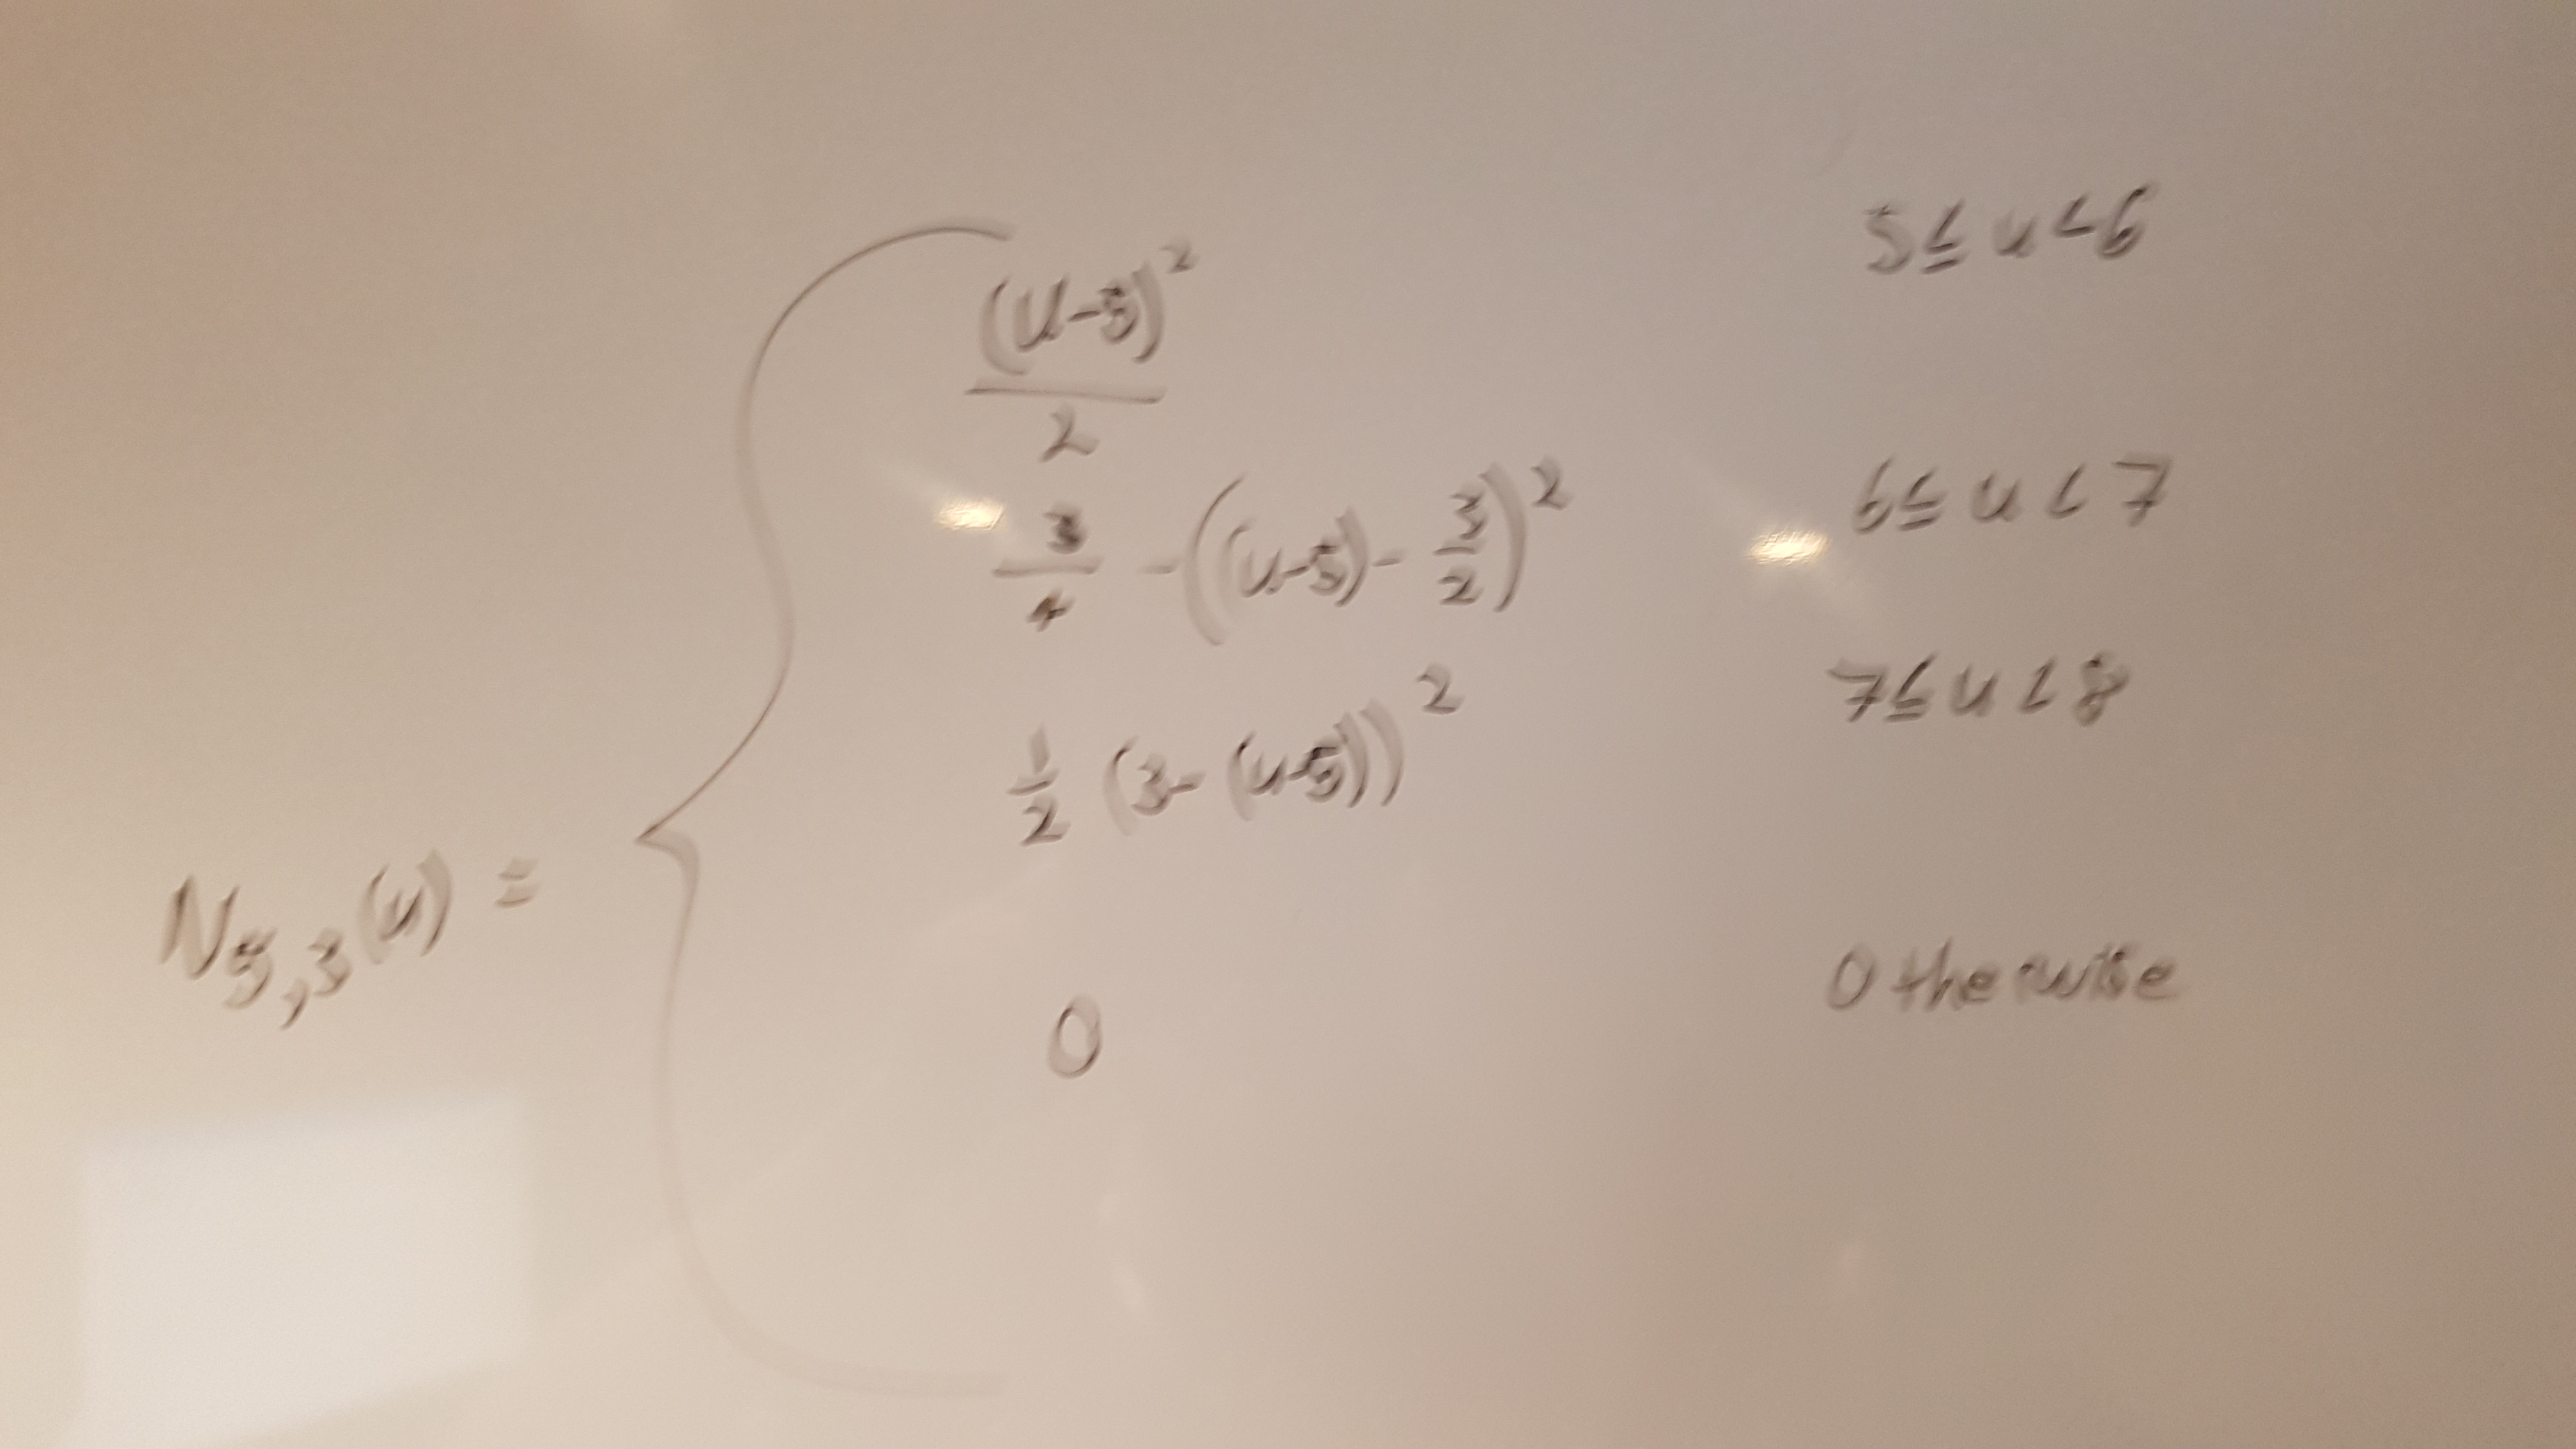 (u-5)² / 2    5 ≤ u < 6
3/4 - ((u-5) - 3/2)²    6 ≤ u < 7
1/2 (3 - (u-5))²    7 ≤ u < 8
N₅,₃(u) =
0    Otherwise